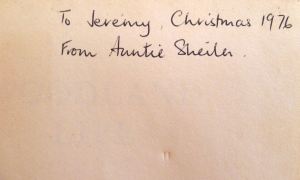 To Jeremy, Christmas 1976
From Auntie Sheila.